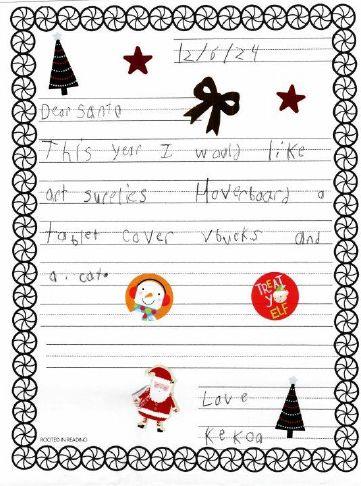 12/6/24
Dear Santa
This year I would like
art surelies Hoverboard a
tablet cover vbucks and
a. cat.
TREAT
YO
ELF
Love
Kekoa
ROOTED IN READING